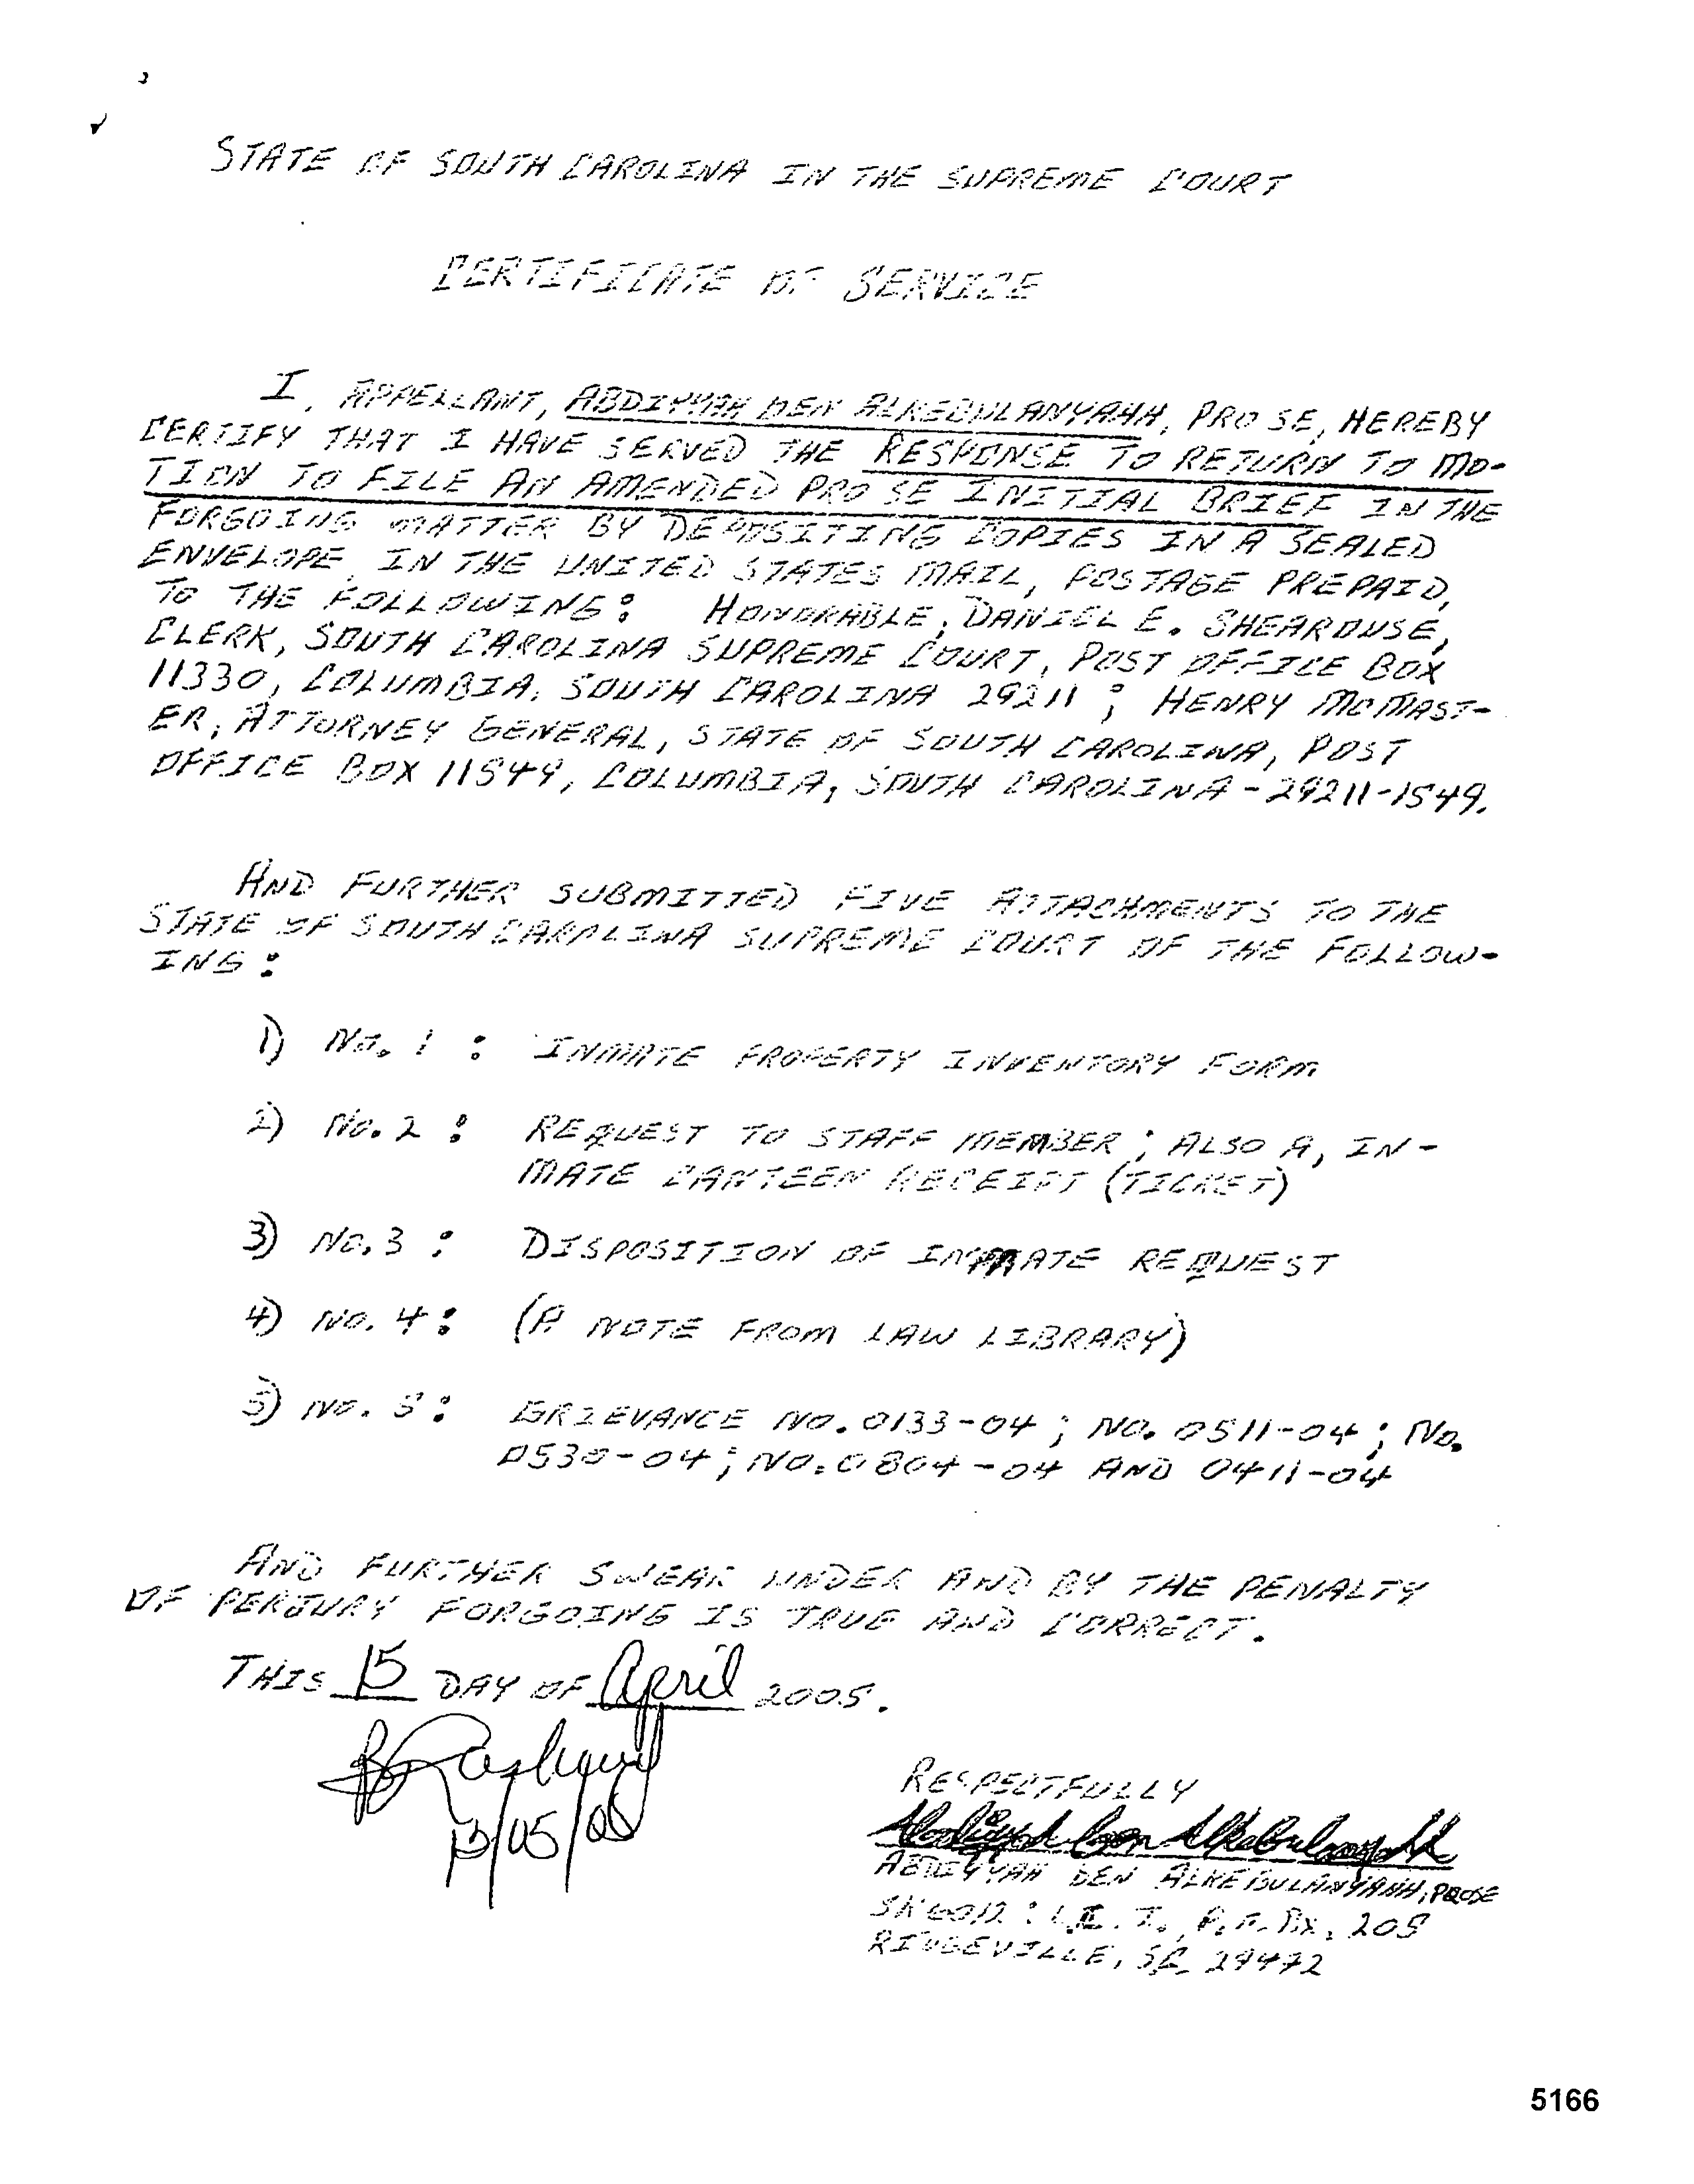 STATE OF SOUTH CAROLINA IN THE SUPREME COURT
CERTIFICATE OF SERVICE
I, APPELLANT, ABDIYYAH BEN ALKEBULANYAHH, PRO SE, HEREBY
CERTIFY THAT I HAVE SERVED THE RESPONSE TO RETURN TO MO-
TION TO FILE AN AMENDED PRO SE INITIAL BRIEF IN THE
FORGOING MATTER BY DEPOSITING COPIES IN A SEALED
ENVELOPE, IN THE UNITED STATES MAIL, POSTAGE PREPAID,
TO THE FOLLOWING: HONORABLE, DANIEL E. SHEAROUSE,
CLERK, SOUTH CAROLINA SUPREME COURT, POST OFFICE BOX
11330, COLUMBIA, SOUTH CAROLINA 29211; HENRY MCMAST-
ER, ATTORNEY GENERAL, STATE OF SOUTH CAROLINA, POST
OFFICE BOX 11549, COLUMBIA, SOUTH CAROLINA - 29211-1549.
AND FURTHER SUBMITTED FIVE ATTACHMENTS TO THE
STATE OF SOUTH CAROLINA SUPREME COURT OF THE FOLLOW-
ING:
1) NO. 1 : INMATE PROPERTY INVENTORY FORM
2) NO. 2 : REQUEST TO STAFF MEMBER; ALSO A, IN-
MATE CANTEEN RECEIPT (TICKET)
3) NO. 3 : DISPOSITION OF INMATE REQUEST
4) NO. 4 : (A NOTE FROM LAW LIBRARY)
5) NO. 5 : GRIEVANCE NO. 0133-04; NO. 0511-04; NO.
0530-04; NO. 0804-04 AND 0411-04
AND FURTHER SWEAR UNDER AND BY THE PENALTY
OF PERJURY FORGOING IS TRUE AND CORRECT.
THIS 15 DAY OF April 2005.
RESPECTFULLY
Abdiyyah ben Alkebulanyahh
ABDIYYAH BEN ALKEBULANYAHH, PROSE
P.O. BX. 205
RIDGEVILLE, SC 29472
5166